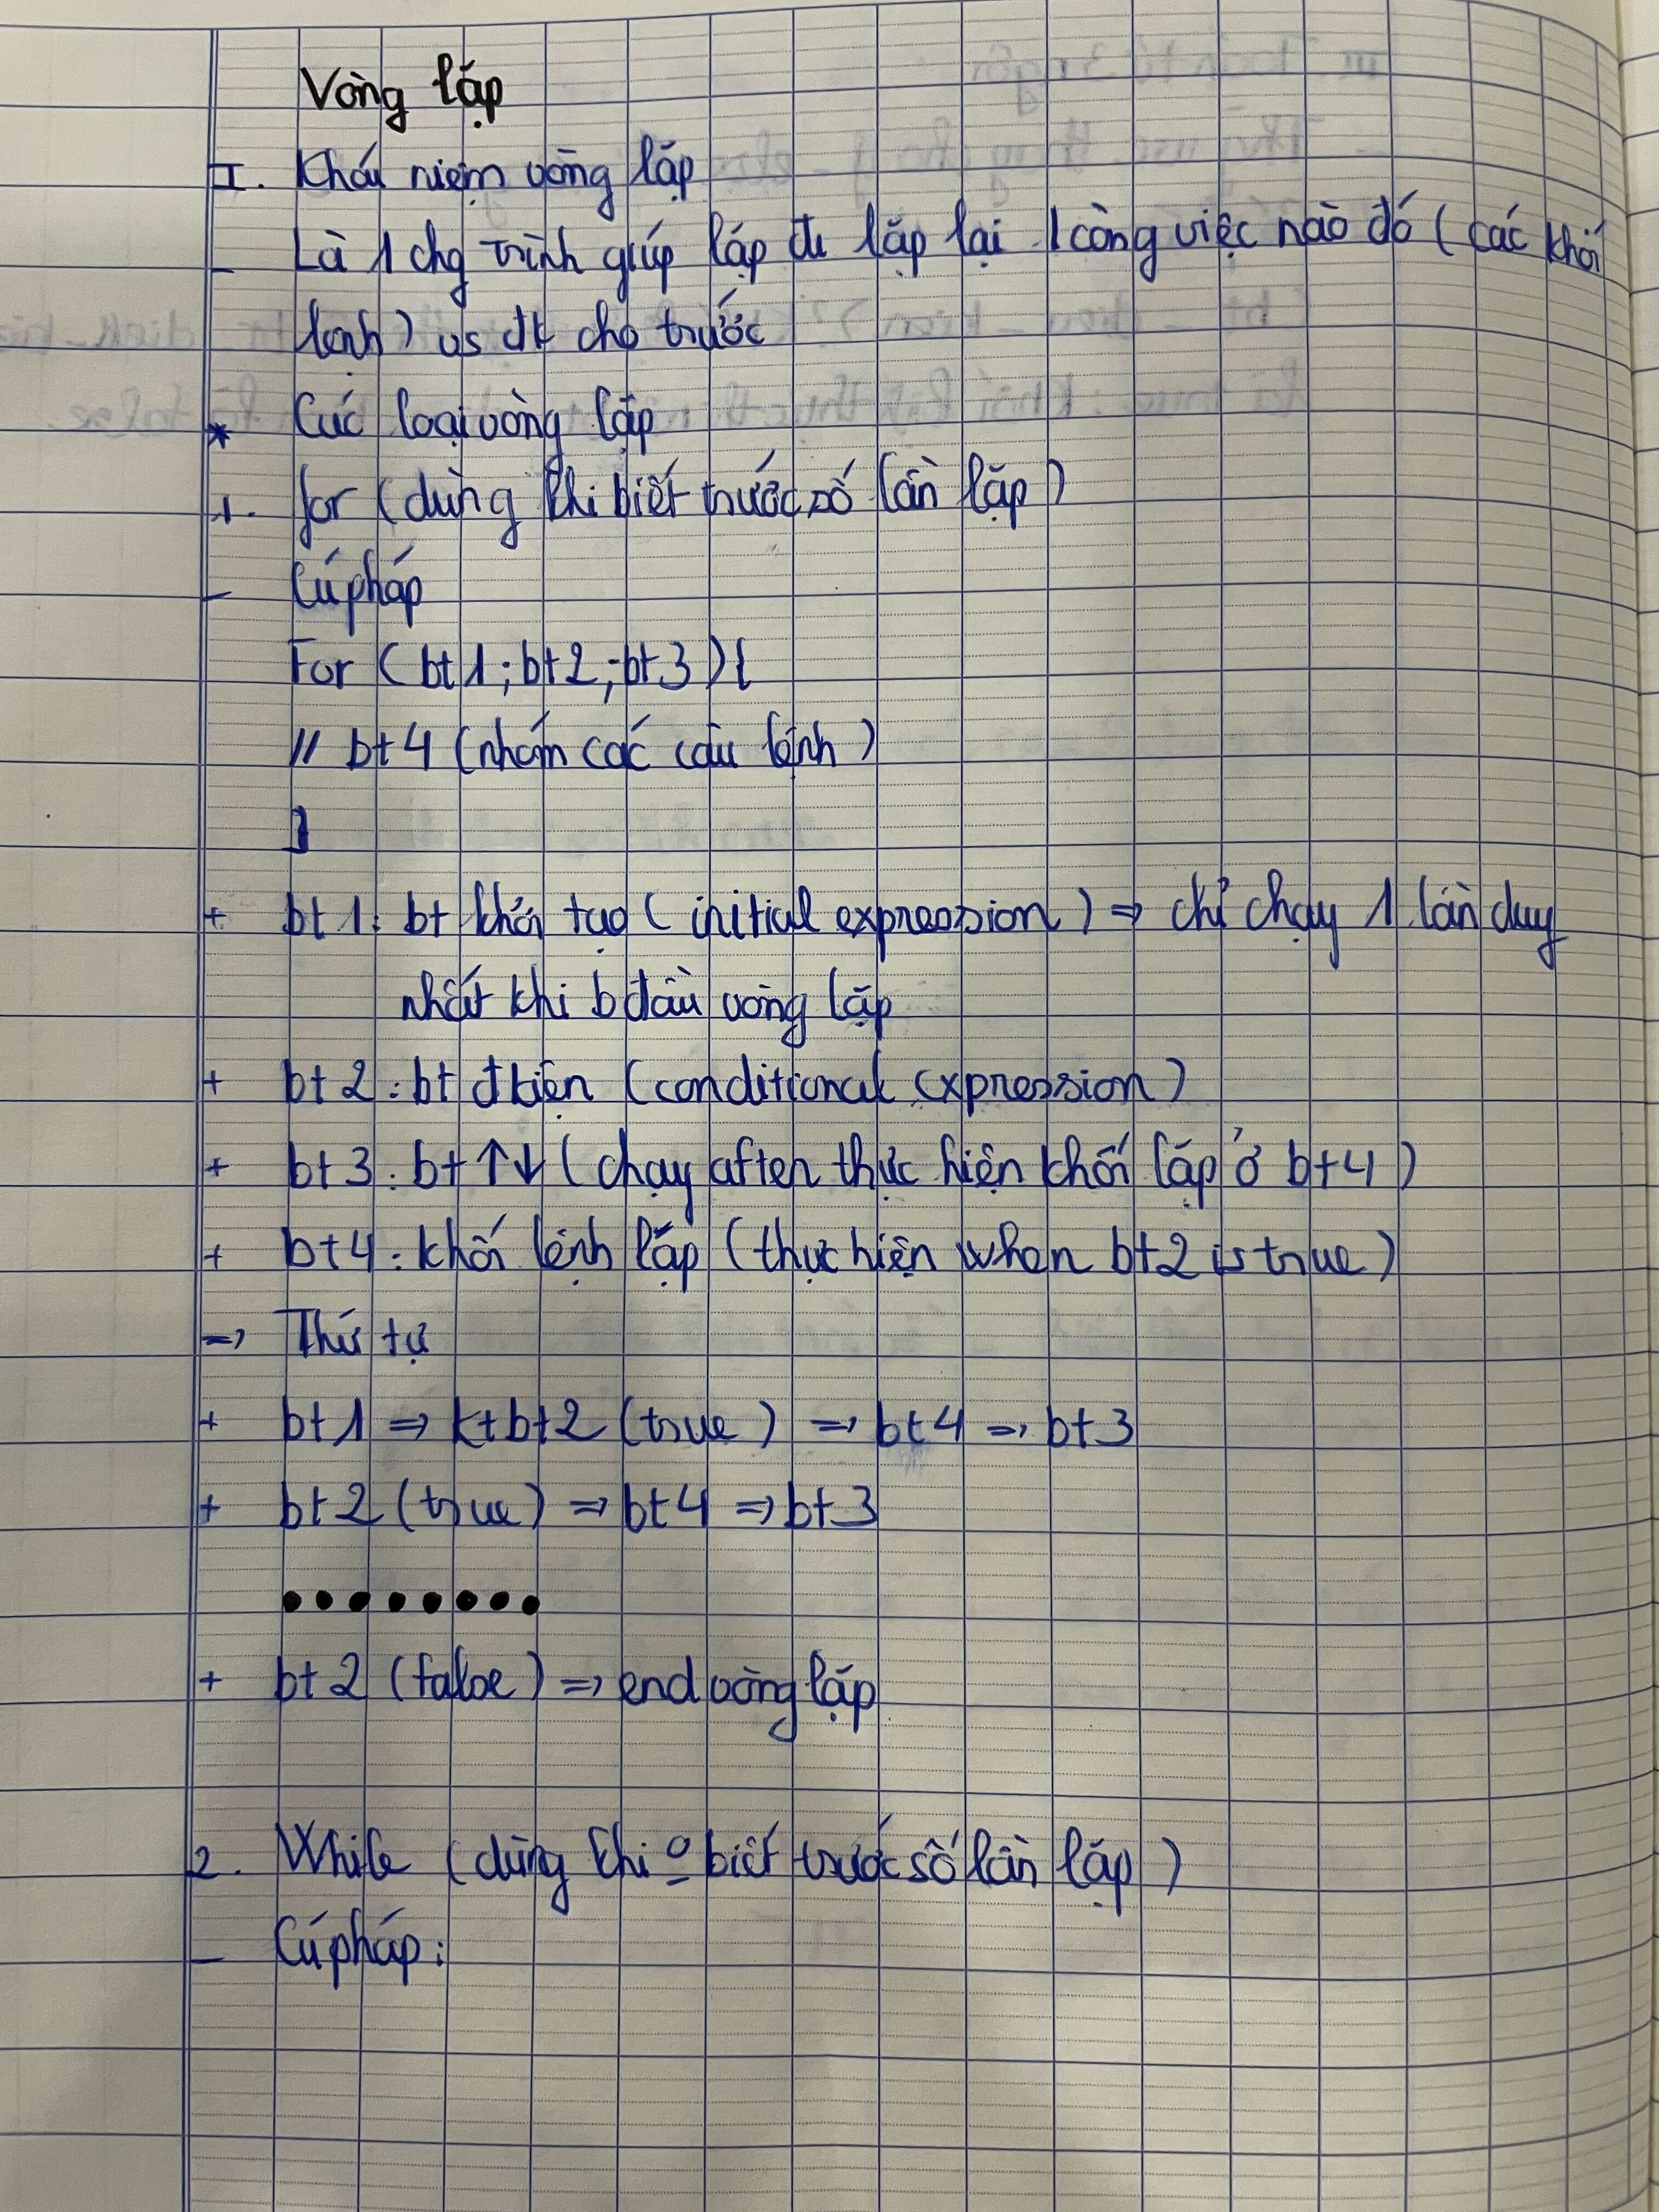 Vòng lặp
I. Khái niệm vòng lặp
- Là 1 chg trình giúp lặp đi lặp lại 1 công việc nào đó (các khối
lệnh) vs đk cho trước
* Các loại vòng lặp
1. for (dùng khi biết trước số lần lặp)
- Cú pháp
For (bt1; bt2; bt3) {
// bt4 (nhóm các câu lệnh)
}
+ bt1: bt khởi tạo (initial expression) => chỉ chạy 1 lần duy
nhất khi b đầu vòng lặp
+ bt2: bt đkiện (conditional expression)
+ bt3: bt ↑↓ (chạy after thực hiện khối lặp ở bt4)
+ bt4: khối lệnh lặp (thực hiện when bt2 is true)
=> Thứ tự
+ bt1 => kt bt2 (true) => bt4 => bt3
+ bt2 (true) => bt4 => bt3
........
+ bt2 (false) => end vòng lặp
2. While (dùng khi o biết trước số lần lặp)
- Cú pháp: